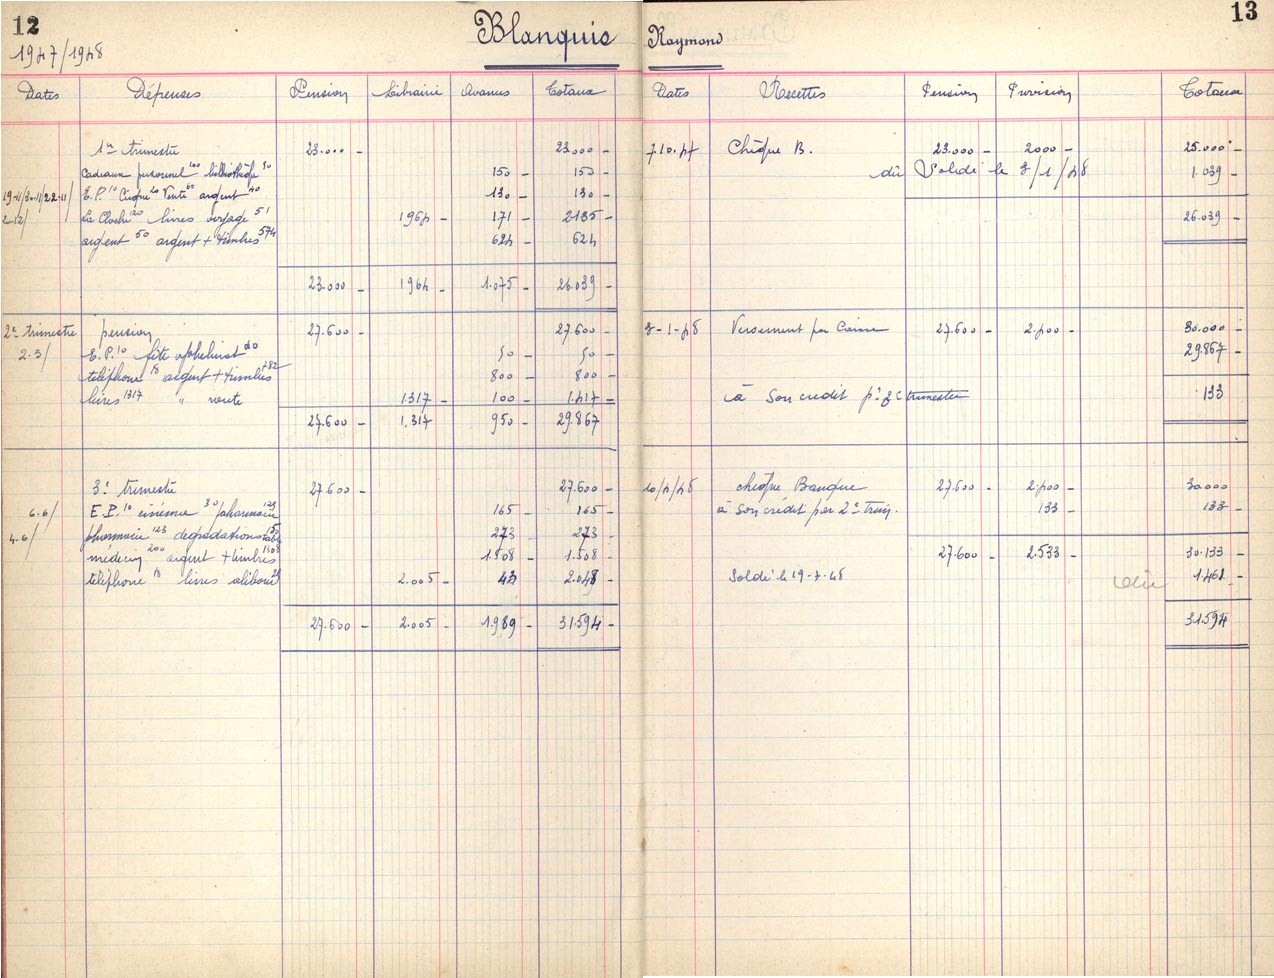 12
1947/1948
Blanquis
Dates Dépenses Pension Librairie Avances Totaux
1er trimestre 23.000 - 23.000 -
cadeaux personnel 100 bibliothèq 50 150 - 150 -
19-11/30-11/22-11 E.P. 10 Cirque 20 Vente 60 argent 40 130 - 130 -
2-12/ La Cloche 120 livres voyage 51 1964 - 171 - 2135 -
argent 50 argent + timbres 574 624 - 624
23.000 - 1964 - 1.075 - 26.039 -
2e trimestre pension 27.600 - 27.600 -
2.3/ E.P. 10 fête 40 50 - 50 -
téléphone 18 argent + timbres 782 800 - 800 -
livres 1317 " route 1317 - 100 - 1.417 -
27.600 - 1.317 950 - 29.867
3e trimestre 27.600 - 27.600 -
6.6/ E.P. 10 cinéma 30 pharmacie 165 - 165 -
4.6/ pharmacie 123 dégradations 273 - 273 -
médecin 200 argent + timbres 1308 1508 - 1.508 -
téléphone 18 livres 2.005 - 43 - 2.048 -
27.600 - 2.005 - 1.989 - 31.594 -
13
Raymond
Dates Recettes Pension Provision Totaux
7.10.47 Chèque B. 23.000 - 2000 - 25.000 -
dû Soldé le 8/1/48 1.039 -
26.039 -
8-1-48 Versement par Caisse 27.600 - 2.400 - 30.000 -
29.867 -
à son crédit pr trimestre 133 -
10/4/48 chèque Banque 27.600 - 2.400 - 30.000
à son crédit par 2e trim. 133 - 133 -
27.600 - 2.533 - 30.133
Soldé le 19-7-48 dû 1.461 -
31.594